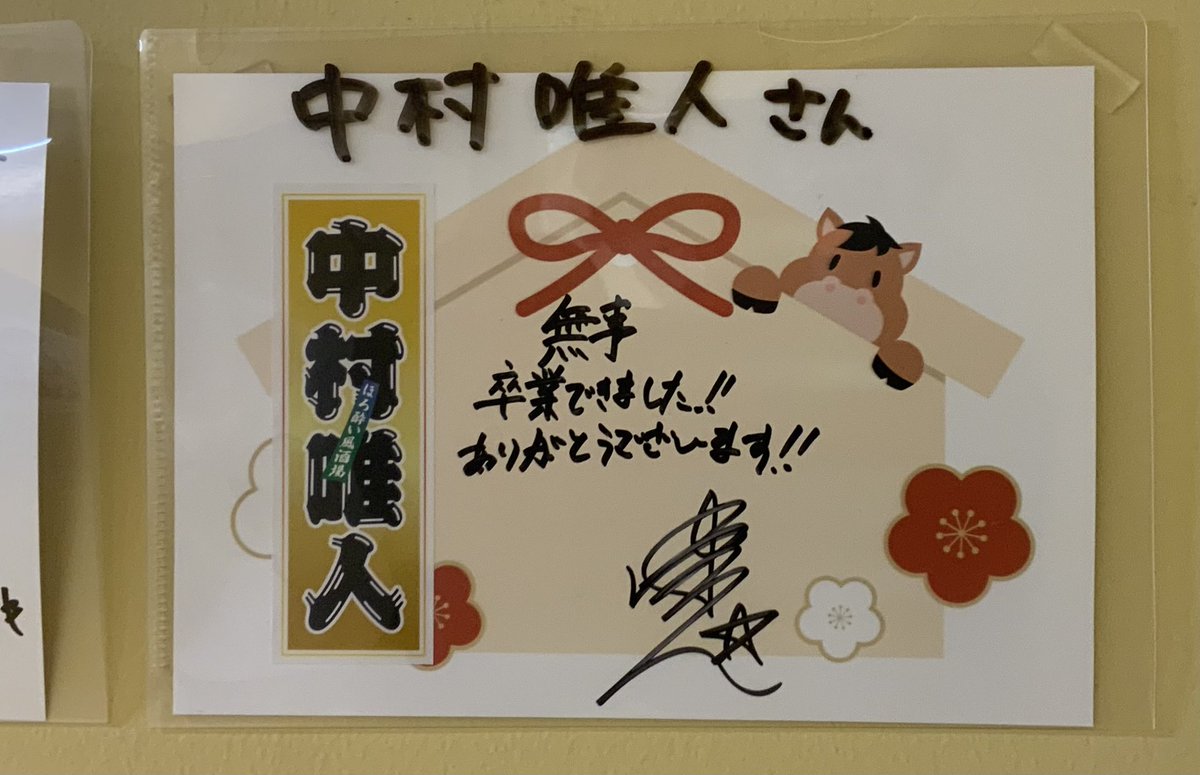 中村 唯人 さん
中村唯人
ほろ酔い風酒場
無事
卒業できました!!
ありがとうございます!!